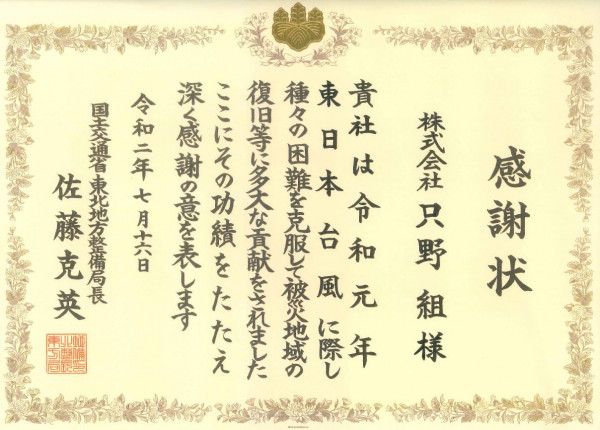 感謝状
株式会社 只野組様
貴社は令和元年
東日本台風に際し
種々の困難を克服して被災地域の
復旧等に多大な貢献をされました
ここにその功績をたたえ
深く感謝の意を表します
令和二年七月十六日
国土交通省東北地方整備局長
佐藤克英